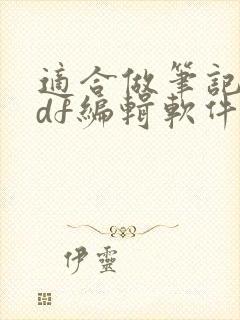 適合做筆記
df編輯軟件
伊靈